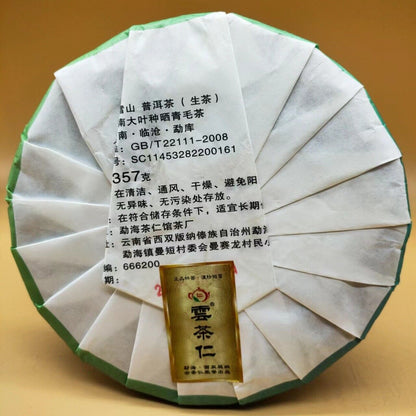 雪山 普洱茶（生茶）
南大叶种晒青毛茶
南·临沧·勐库
: GB/T22111-2008
号: SC11453282200161
357克
在清洁、通风、干燥、避免阳
无异味、无污染处存放。
: 在符合储存条件下，适宜长期
: 勐海茶仁馆茶厂
: 云南省西双版纳傣族自治州勐海
勐海镇曼短村委会曼赛龙村民小
编: 666200
雲茶仁